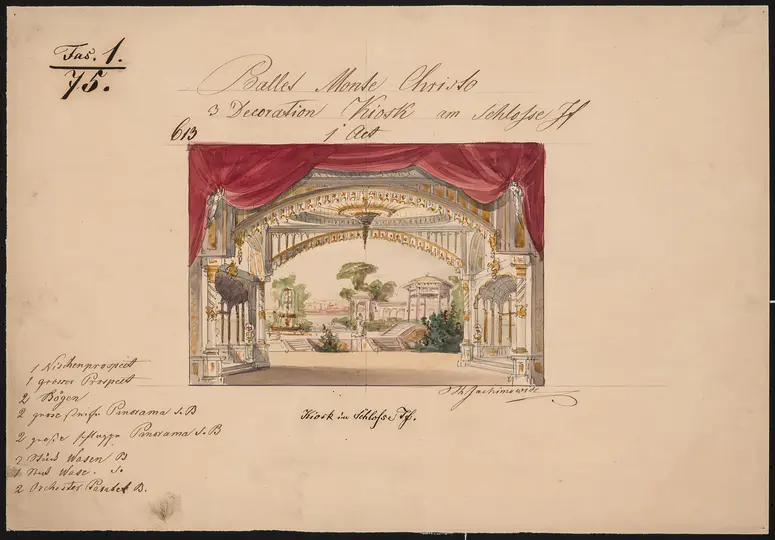 Fas. 1.
75.
Ballet Monte Christo
3 Decoration Kiosk am Schlosse If
613
1 Act
1 Nischenprospect
1 grosser Prospect
2 Bögen
2 grose Panorama S. B
2 große Panorama S. B
2 Stück Wasen B
1 Stück Wase. So
2 Orchester B.
Th. Jachimowicz
Kiosk im Schlosse If.